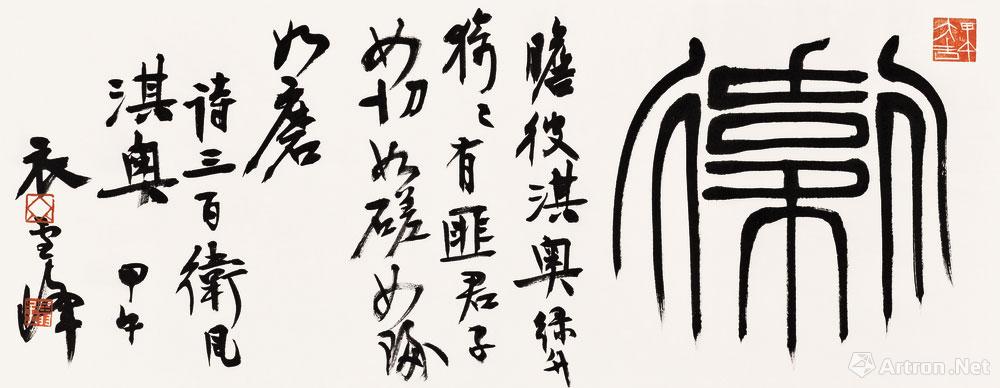 衛
瞻彼淇奥绿竹
猗々有匪君子
如切如磋如琢
如磨
诗三百衛风
淇奥 甲午
衣雪峰
Artron.Net